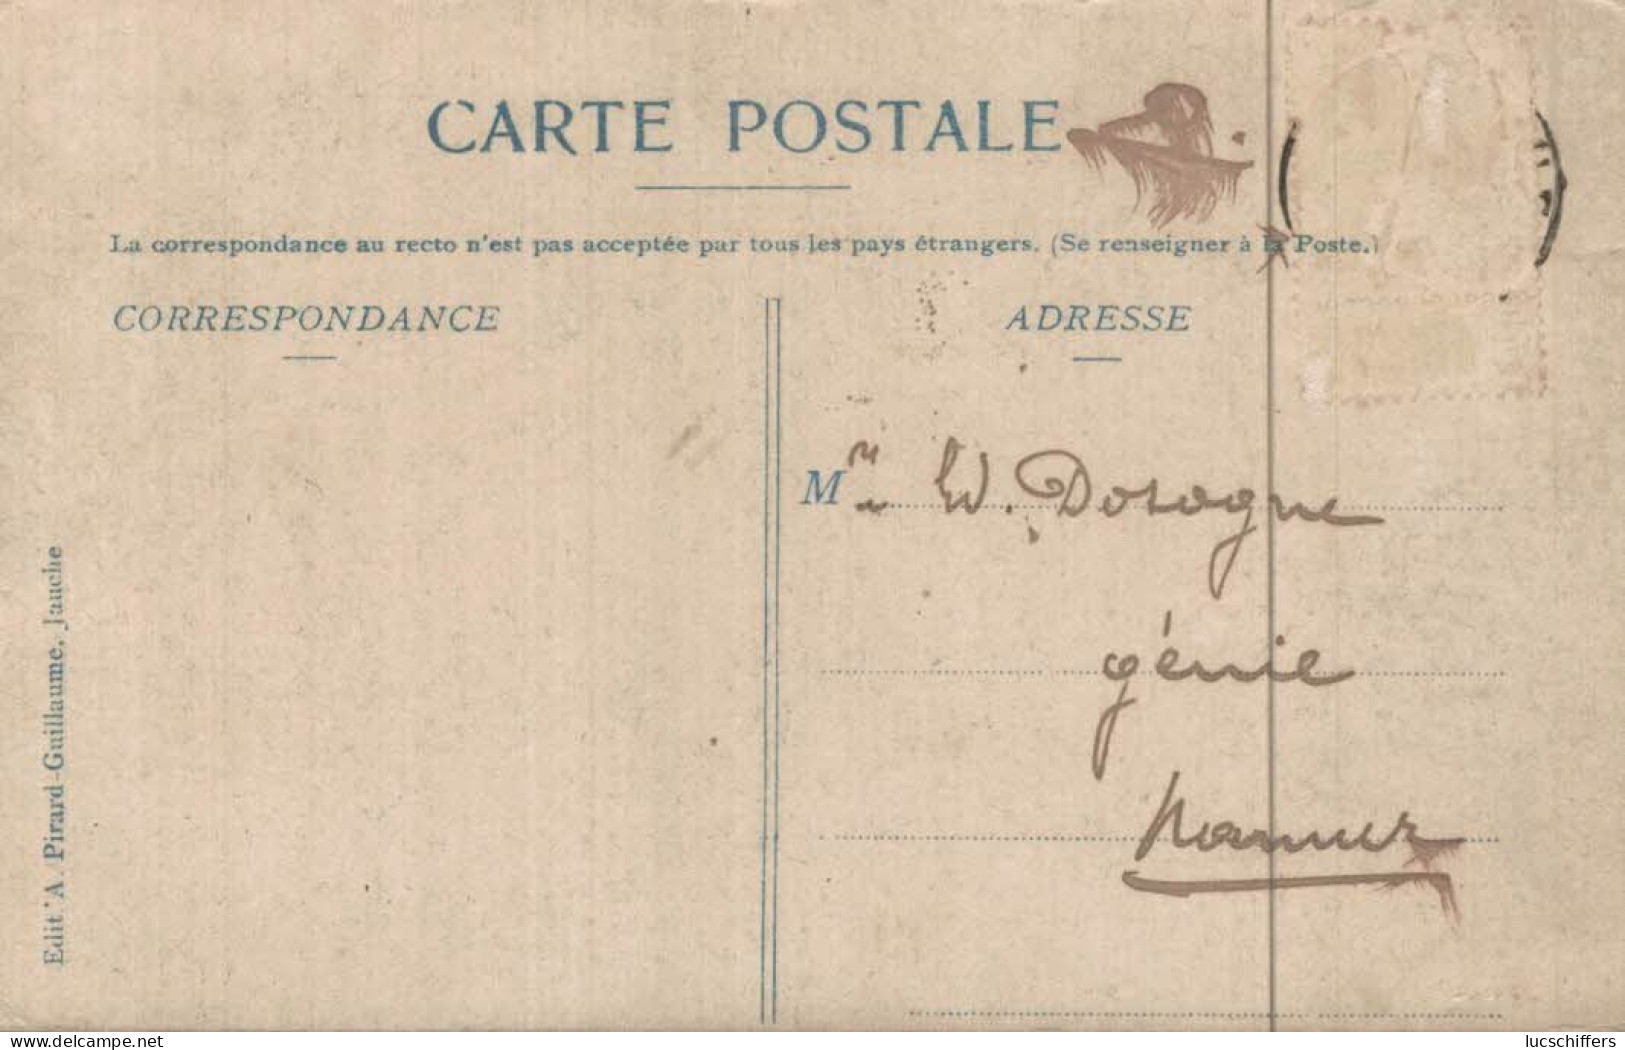 CARTE POSTALE
La correspondance au recto n'est pas acceptée par tous les pays étrangers. (Se renseigner à la Poste.)
CORRESPONDANCE
ADRESSE
M
Dosogne
génie
Namur
Edit. A. Pirard-Guillaume, Jauche
delcampe.net
lucschiffers